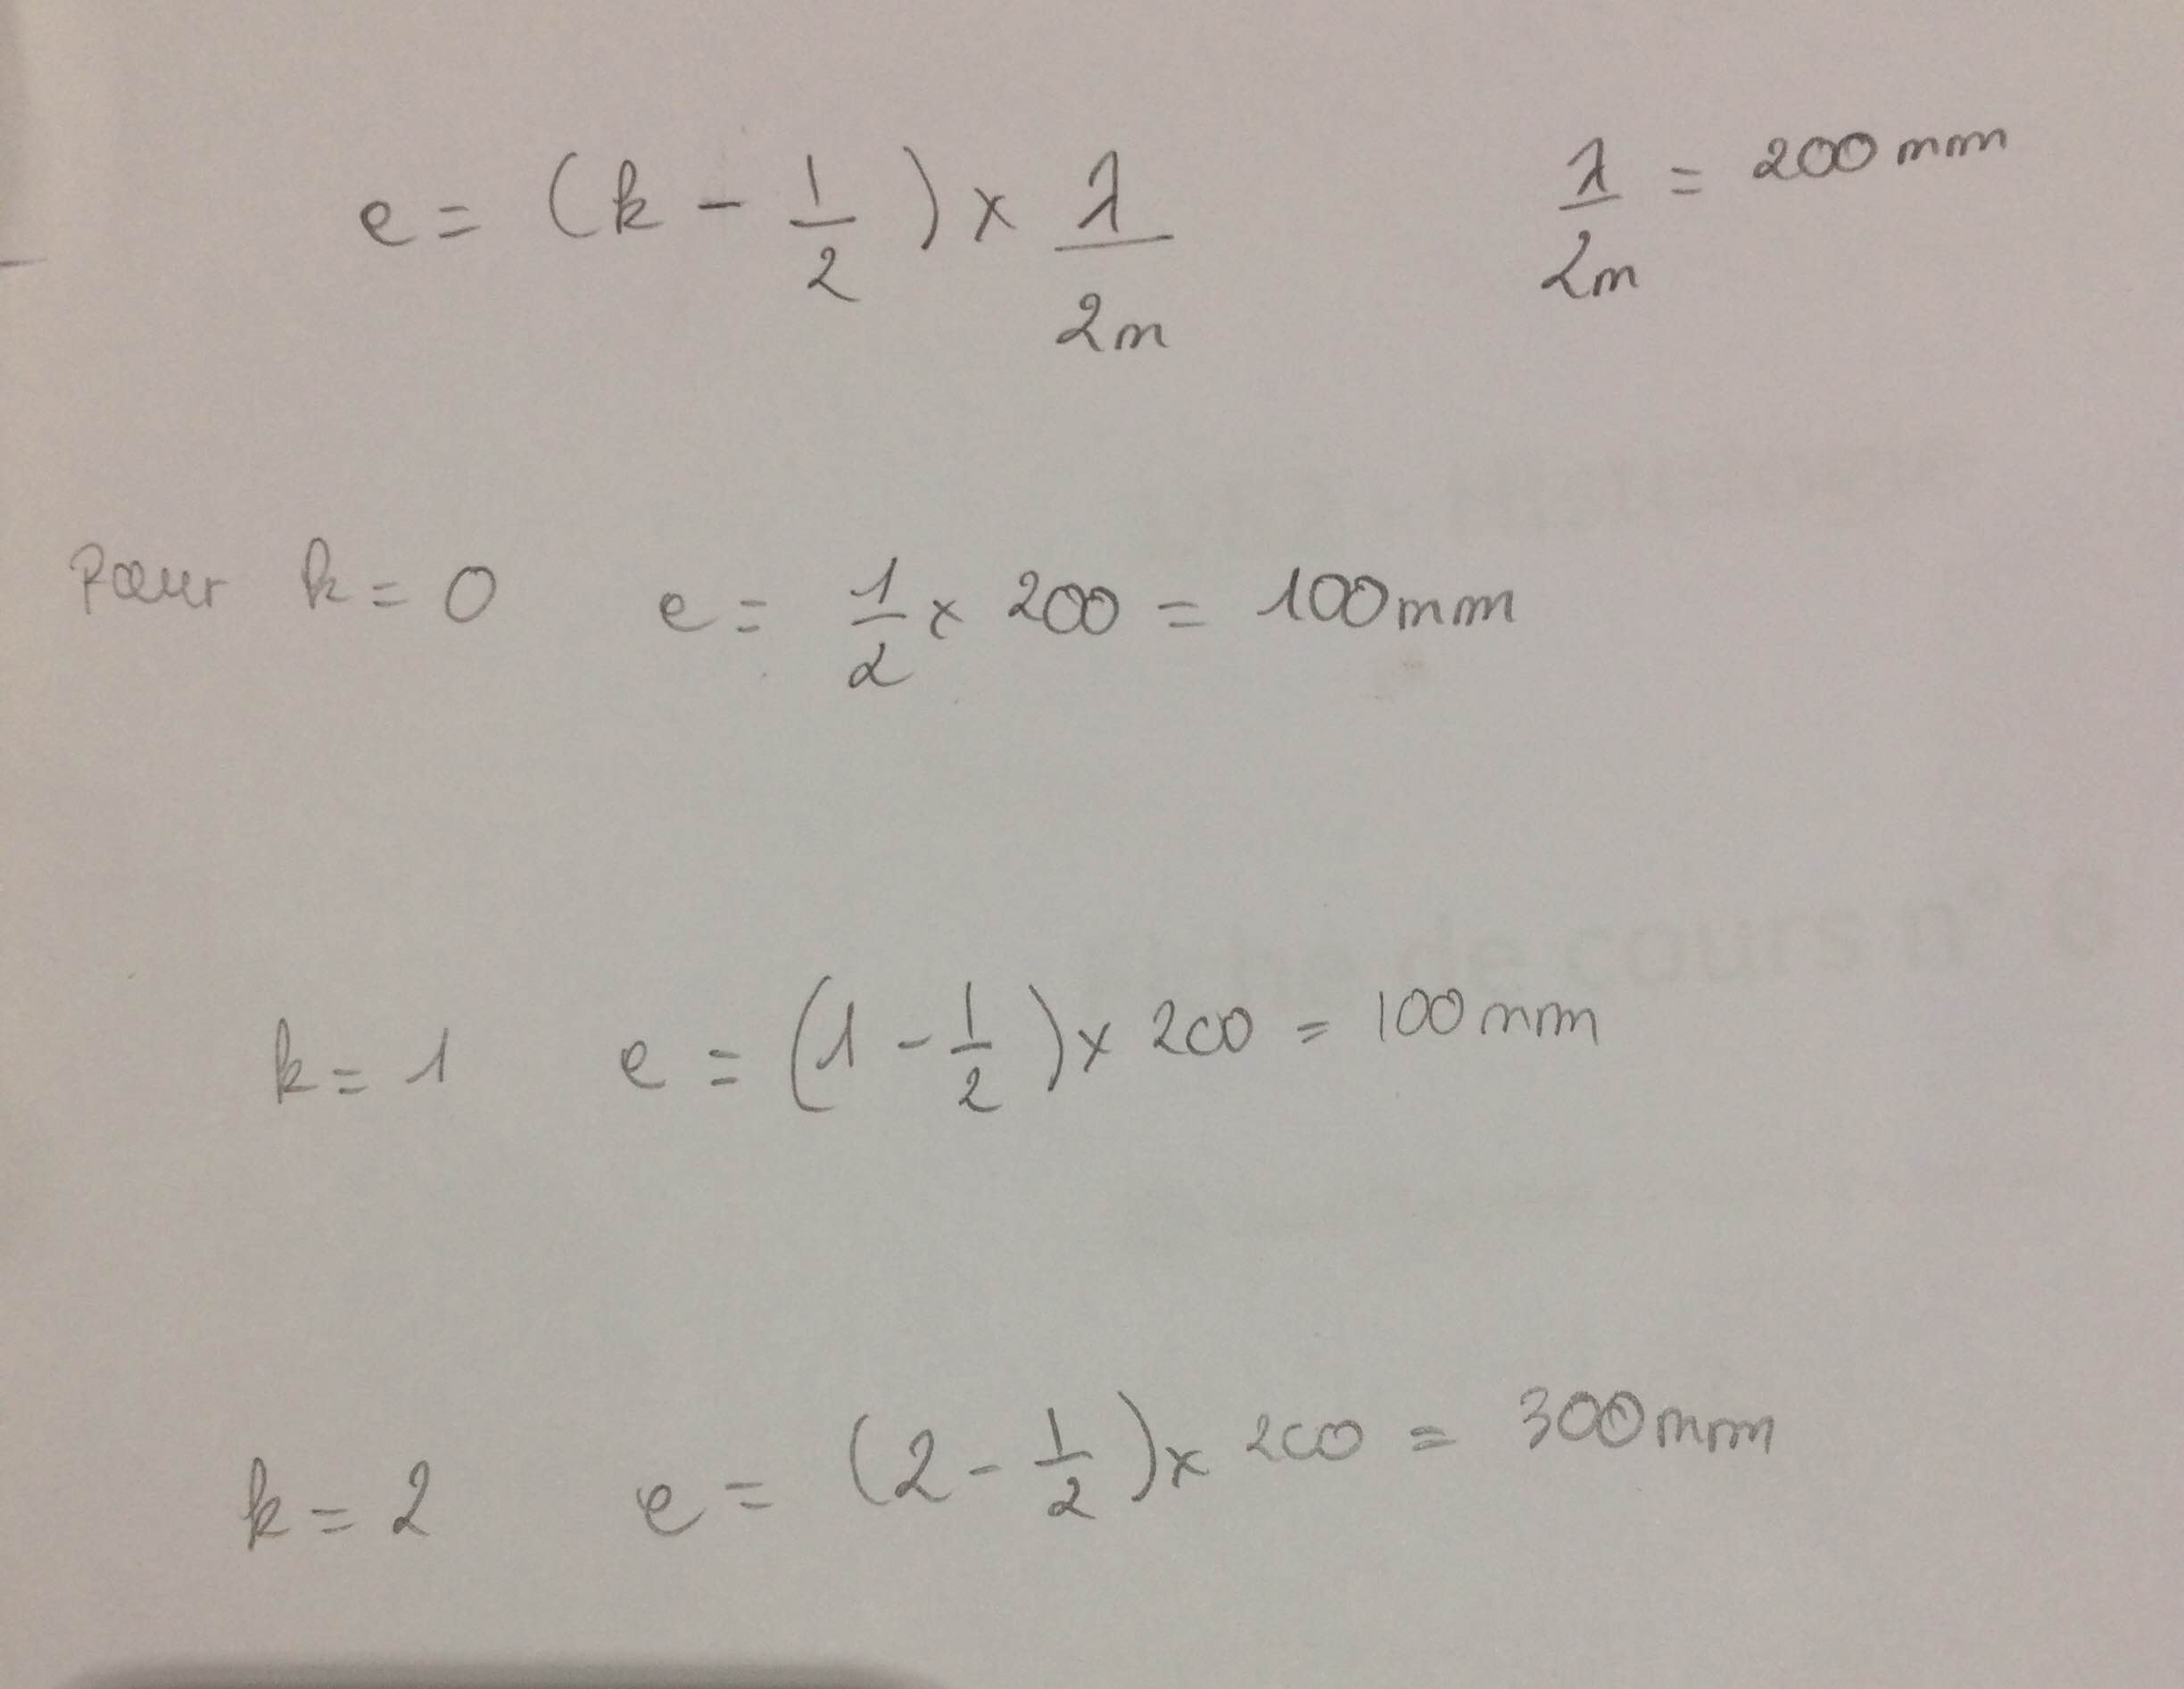 e = (k - 1/2) × λ/2n    λ/2n = 200 nm
Pour k = 0    e = 1/2 × 200 = 100 nm
k = 1    e = (1 - 1/2) × 200 = 100 nm
de cours n° 8
k = 2    e = (2 - 1/2) × 200 = 300 nm